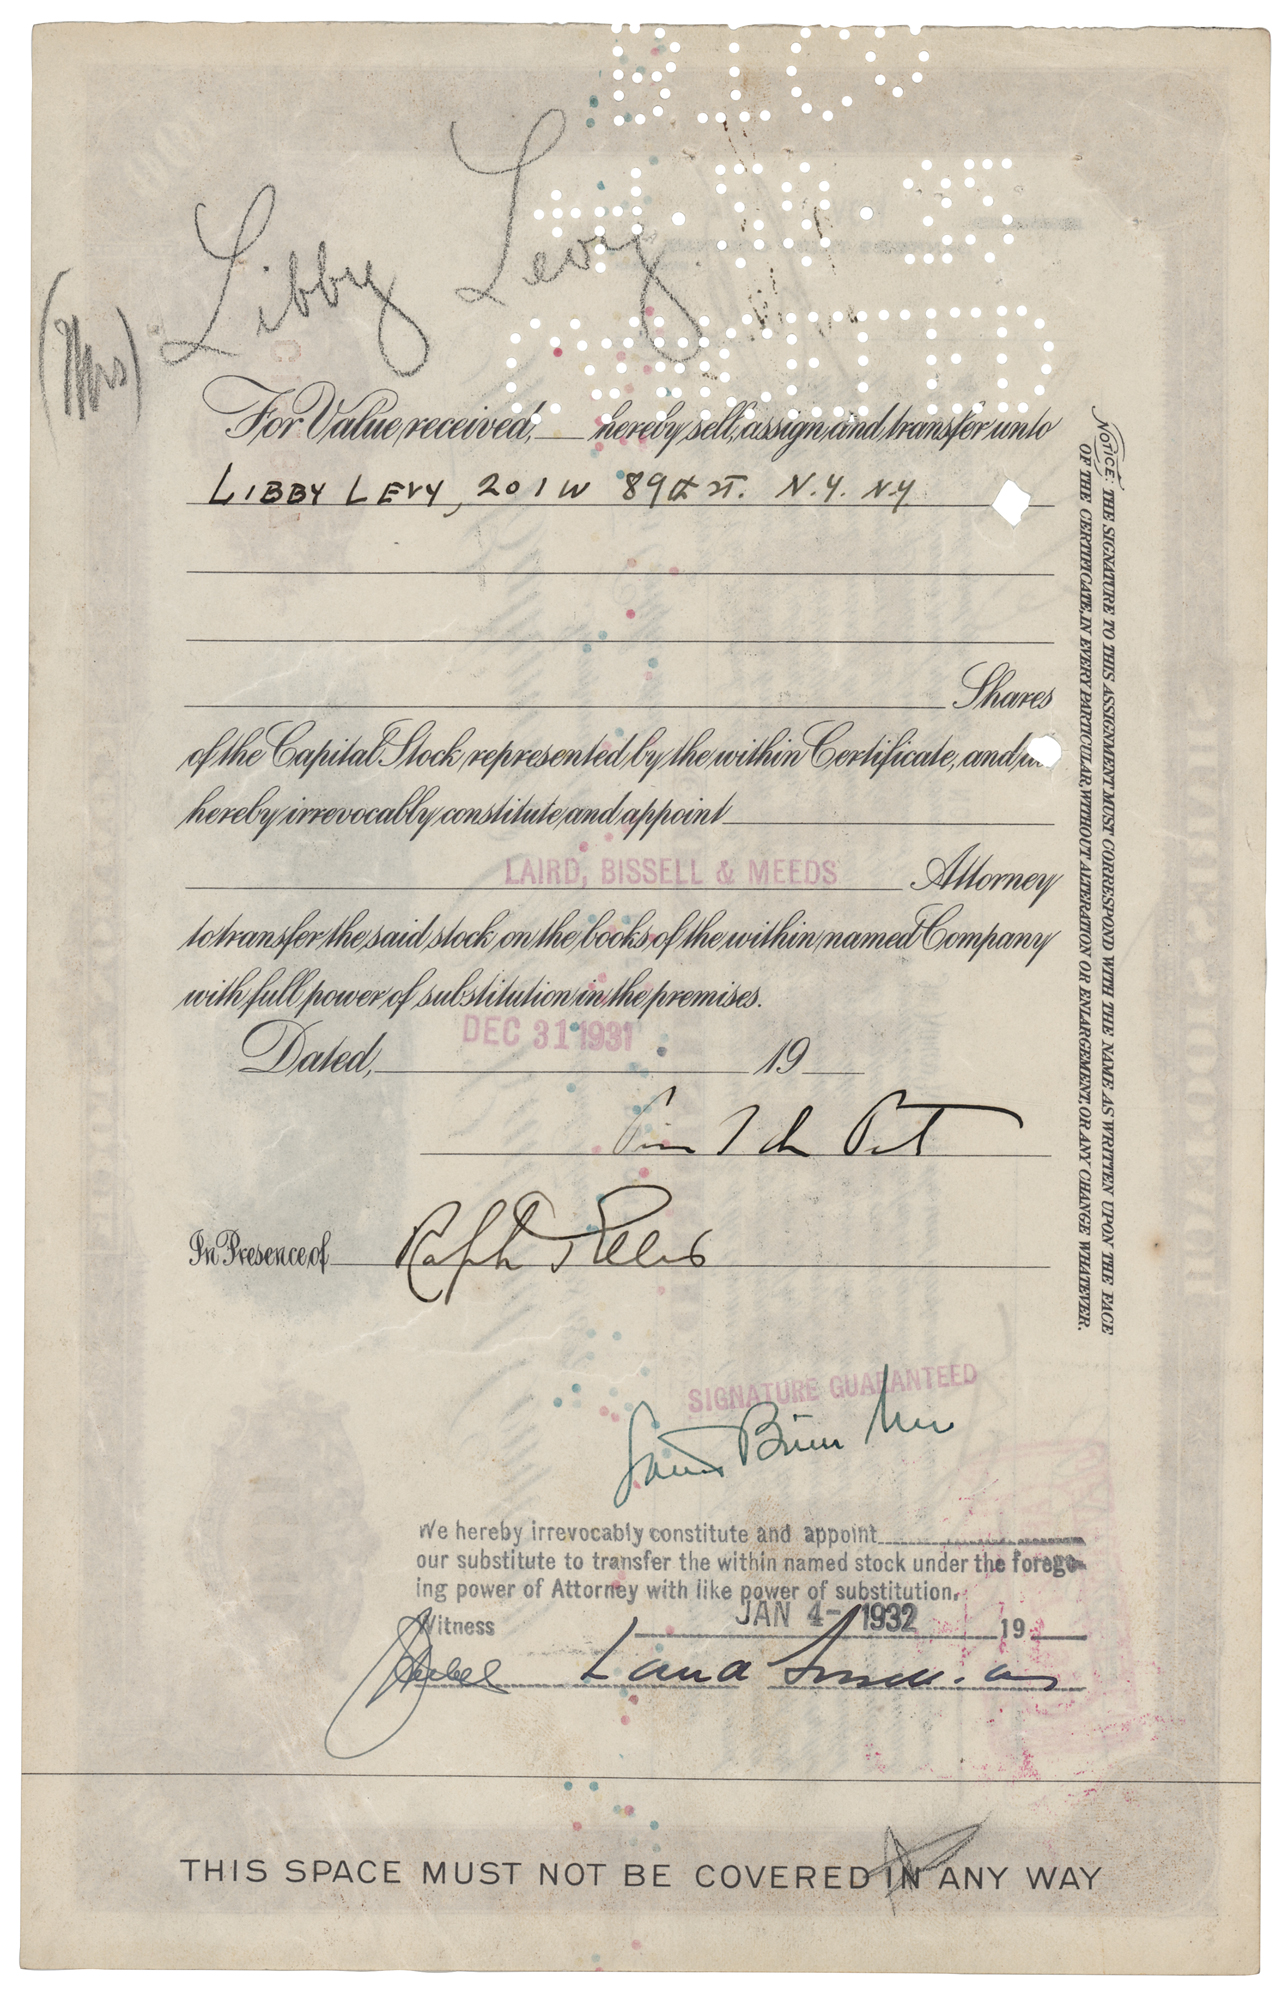 (Mrs) Libby Levy
For Value received, ___ hereby sell, assign and transfer unto
LIBBY LEVY, 201 W 89th ST. N.Y. N.Y.
Shares
of the Capital Stock represented by the within Certificate, and
hereby irrevocably constitute and appoint
LAIRD, BISSELL & MEEDS Attorney
to transfer the said stock on the books of the within named Company
with full power of substitution in the premises.
DEC 31 1931
Dated, 19
In Presence of Ralph Ellis
SIGNATURE GUARANTEED
We hereby irrevocably constitute and appoint
our substitute to transfer the within named stock under the forego-
ing power of Attorney with like power of substitution.
JAN 4- 1932
Witness 19
THIS SPACE MUST NOT BE COVERED IN ANY WAY
NOTICE: THE SIGNATURE TO THIS ASSIGNMENT MUST CORRESPOND WITH THE NAME AS WRITTEN UPON THE FACE
OF THE CERTIFICATE, IN EVERY PARTICULAR, WITHOUT ALTERATION OR ENLARGEMENT, OR ANY CHANGE WHATEVER.